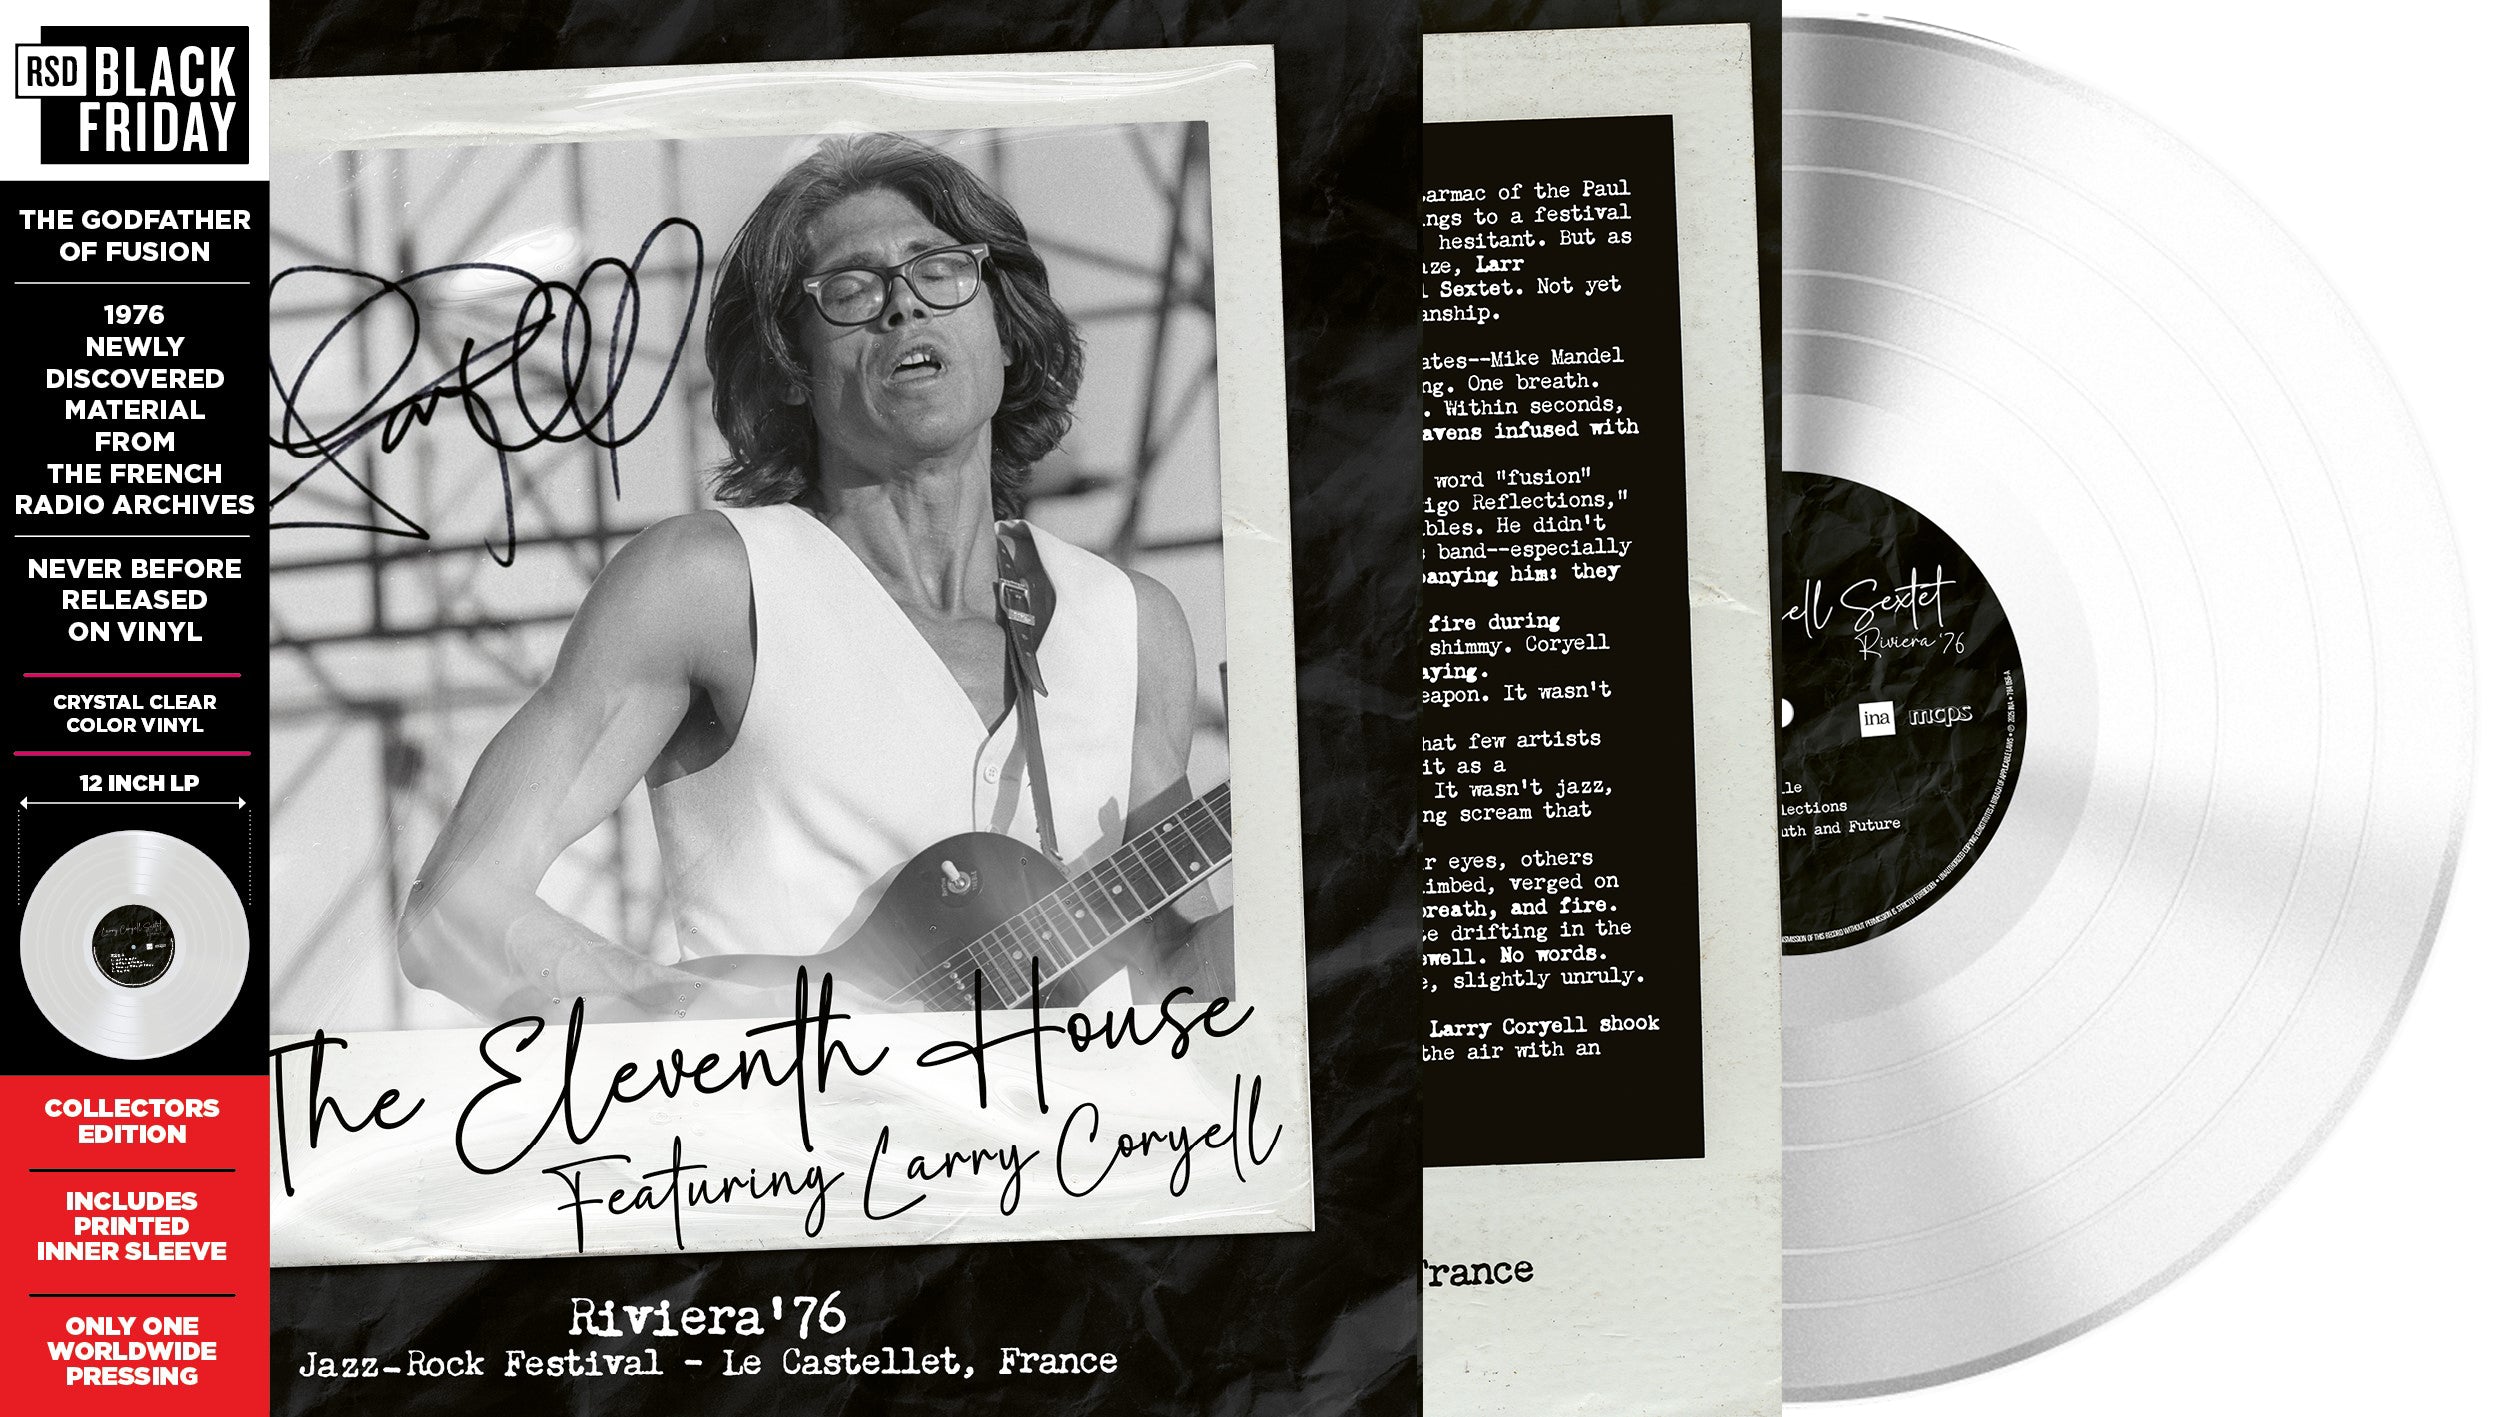 RSD BLACK
FRIDAY
THE GODFATHER
OF FUSION
1976
NEWLY
DISCOVERED
MATERIAL
FROM
THE FRENCH
RADIO ARCHIVES
NEVER BEFORE
RELEASED
ON VINYL
CRYSTAL CLEAR
COLOR VINYL
12 INCH LP
COLLECTORS
EDITION
INCLUDES
PRINTED
INNER SLEEVE
ONLY ONE
WORLDWIDE
PRESSING
Coryell
The Eleventh House
Featuring Larry Coryell
Riviera'76
Jazz-Rock Festival - Le Castellet, France
armac of the Paul
ngs to a festival
hesitant. But as
ze, Larr
l Sextet. Not yet
anship.
ates--Mike Mandel
ng. One breath.
. Within seconds,
avens infused with
word "fusion"
igo Reflections,"
bles. He didn't
band--especially
panying him: they
fire during
shimmy. Coryell
aying.
eapon. It wasn't
hat few artists
it as a
It wasn't jazz,
ng scream that
r eyes, others
imbed, verged on
breath, and fire.
te drifting in the
ewell. No words.
e, slightly unruly.
Larry Coryell shook
the air with an
France
ell Sextet
Riviera '76
ina mcps
le
lections
uth and Future